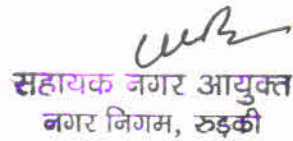 सहायक नगर आयुक्त
नगर निगम, रुड़की